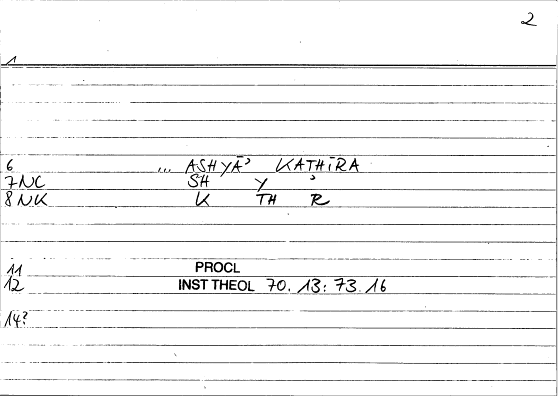 2
1
6 ... ASHYĀʾ KATHĪRA
7 NC SH Y ʾ
8 NK K TH R
11 PROCL
12 INST THEOL 70. 13: 73. 16
14?